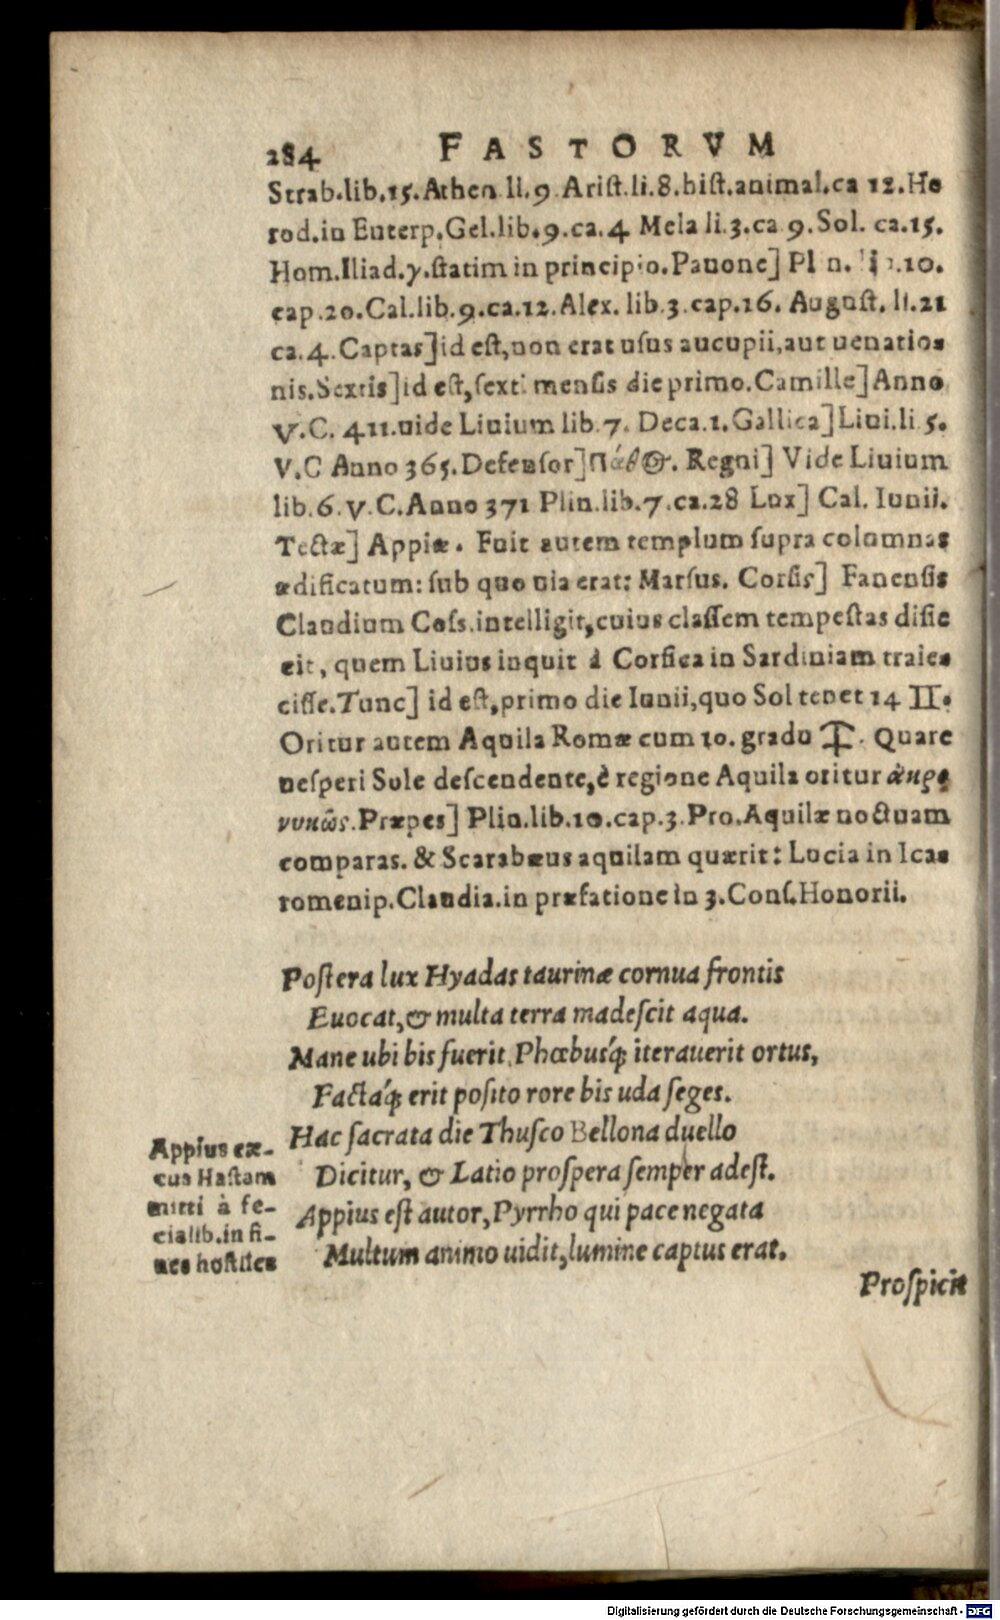 284 FASTORVM
Strab.lib.15.Athen li.9 Arist.li.8.hist.animal.ca 12.He
rod.in Euterp.Gel.lib.9.ca.4 Mela li.3.ca 9.Sol. ca.15.
Hom.Iliad.γ.statim in principio.Pauone] Plin. 10.
cap.20.Cal.lib.9.ca.12.Alex. lib.3.cap.16. August. li.21
ca.4.Captas]id est,non erat usus aucupii,aut uenatio-
nis.Sextis]id est,sexti mensis die primo.Camille] Anno
V.C. 411.uide Liuium lib.7. Deca.1.Gallica] Liui.li 5.
V.C Anno 365.Defensor] Regni] Vide Liuium
lib.6.V.C.Anno 371 Plin.lib.7.ca.28 Lux] Cal. Iunii.
Tectæ] Appiæ. Fuit autem templum supra columnas
ædificatum: sub quo uia erat: Marsus. Corsis] Fanensis
Claudium Coss.intelligit,cuius classem tempestas disie
cit, quem Liuius inquit à Corsica in Sardiniam traie-
cisse.Tunc] id est,primo die Iunii,quo Sol tenet 14 II.
Oritur autem Aquila Romæ cum 10. gradu . Quare
uesperi Sole descendente,è regione Aquila oritur ἀκρο
νυκῶς.Præpes] Plin.lib.10.cap.3.Pro.Aquilæ noctuam
comparas. & Scarabæus aquilam quærit: Lucia in Ica-
romenip.Claudia.in præfatione in 3.Cons.Honorii.
Postera lux Hyadas taurinæ cornua frontis
Euocat,& multa terra madescit aqua.
Mane ubi bis fuerit,Phœbusq́; iterauerit ortus,
Factaq́; erit posito rore bis uda seges.
Hac sacrata die Thusco Bellona duello
Dicitur, & Latio prospera semper adest.
Appius est autor,Pyrrho qui pace negata
Multum animo uidit,lumine captus erat.
Appius cæ-
cus Hastam
mitti à fe-
cialib.in fi-
nes hostiles
Prospicit
Digitalisierung gefördert durch die Deutsche Forschungsgemeinschaft - DFG